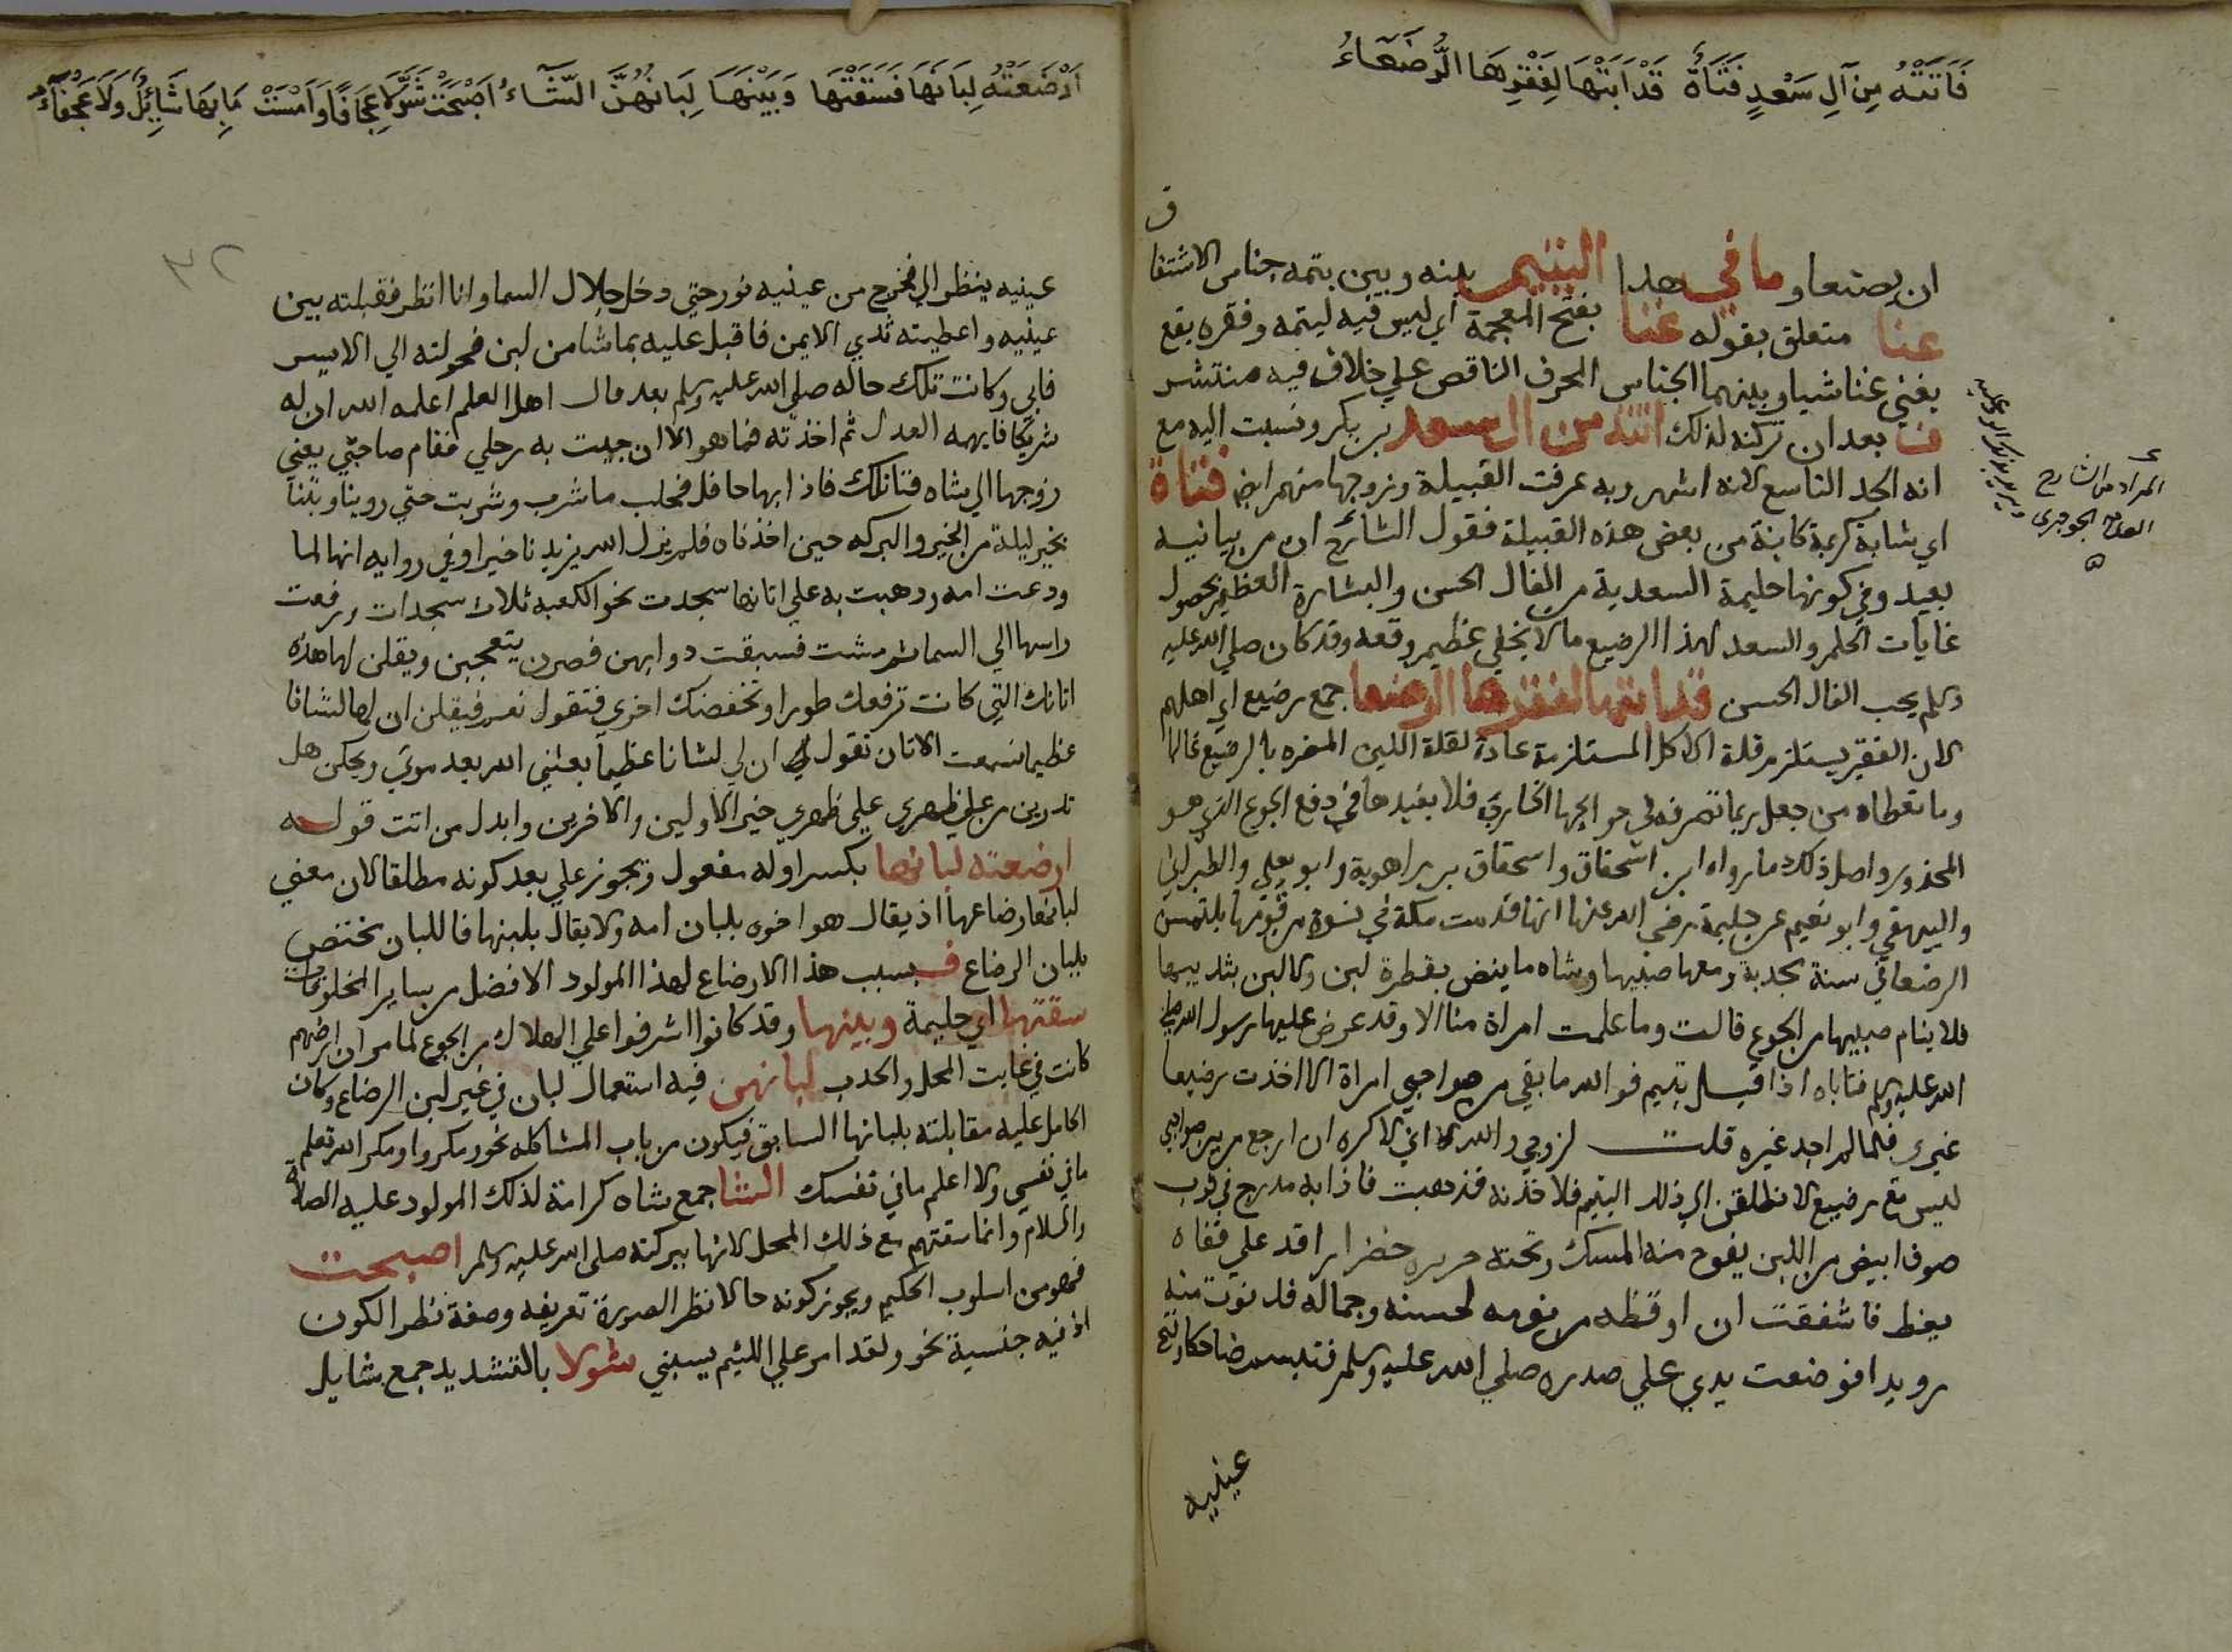 فَأَتَتْهُ مِنْ آلِ سَعْدٍ فَتَاةٌ قَدْ أَبَتْهَا لِفَقْرِهَا الرُّضَعَاءُ
ان يصنعا وما في هذا اليتيم بينه وبين يتمه جناس الاشتقا
ق
عنا متعلق بقوله غنا بفتح المعجمة اي ليس فيه ليتمه وفقره يقع
يغني غنا شيا وبينهما الجناس المحرف الناقص علي خلاف فيه منتشر
ف بعد ان تركنه لذلك اتته من ال سعد بن بكر ونسبت اليه مع
انه الجد التاسع لانه اشهر وبه عرفت القبيلة وزوجها منهم ايضا فتاة
اي شابة كريمة كاينة من بعض هذه القبيلة فقول الشارح ان من بيانيه
بعيد وفي كونها حليمة السعدية من الفال الحسن والبشارة العظمي بحصول
غايات الحلم والسعد لهذا الرضيع ما لا يخفي عظيم وقعه وقد كان صلي الله عليه
وسلم يحب الفال الحسن قد ابتها لفقرها الرضعا جمع رضيع اي اهلهم
لان الفقر يستلزم قلة الاكل المستلزمة عادة لقلة اللبن المضره بالرضيع غالبا
وما تعطاه من جعل ربما تصرفه في حوايجها الخارجة فلا يفيدها في دفع الجوع الذي هو
المحذور واصل ذلك ما رواه ابن اسحاق واسحاق بن راهوية وابو يعلي والطبراني
والبيهقي وابو نعيم عن حليمة رضي الله عنها انها قدمت مكة في نسوة من قومها يلتمسن
الرضعا في سنة مجدبة ومعها صبيها وشاه ما ينض بقطرة لبن ولا لبن بثدييها
فلا ينام صبيها من الجوع قالت وما علمت امراة منا الا وقد عرض عليها رسول الله صلي
الله عليه وسلم فتاباه اذا قيل يتيم فوالله ما بقي من صواحبي امراة الا اخذت رضيعا
غيري فلما لم اجد غيره قلت لزوجي والله اني لاكره ان ارجع من بين صواحبي
ليس معي رضيع لا نطلقن الي ذلك اليتيم فلاخذنه فذهبت فاذا به مدرج في ثوب
صوف ابيض من اللبن يفوح منه المسك وتحته حريره خضرا راقد علي قفاه
يغط فاشفقت ان اوقظه من نومه لحسنه وجماله فدنوت منه
رويدا فوضعت يدي علي صدره صلي الله عليه وسلم فتبسم ضاحكا وفتح
عينيه
المراد من الشارح
العلامة الجوجري
أَرْضَعَتْهُ لِبَانَهَا فَسَقَتْهَا وَبَيْنَهَا لِبَانَهُنَّ الشَّاءُ أَصْبَحَتْ شُوَّلًا عِجَافًا وَأَمْسَتْ مَا بِهَا شَائِلٌ وَلَا عَجْفَاءُ
٣٢
عينيه ينظر الي فخرج من عينيه نور حتي دخل خلال السما وانا انظر فقبلته بين
عينيه واعطيته ثدي الايمن فاقبل عليه بما شا من لبن فحولته الي الايسر
فابي وكانت تلك حاله صلي الله عليه وسلم بعد قال اهل العلم اعلمه الله ان له
شريكا فالهمه العدل ثم اخذته فما هو الا ان جيت به رحلي فقام صاحبي يعني
زوجها الي شاه فتا تلك فاذا بها حافل فحلب ما شرب وشربت حتي روينا وبتنا
بخير ليلة من الخير والبركه حين اخذناه فلم يزل الله يزيدنا خيرا وفي روايه انها لما
ودعت امه وذهبت به علي اتانها سجدت نحو الكعبه ثلاث سجدات ورفعت
راسها الي السما ثم مشت فسبقت دوابهن فصرن يتعجبن ويقلن لها هذه
اتانك التي كانت ترفعك طورا وتخفضك اخري فتقول نعم فيقلن ان لها لشانا
عظيما فسمعت الاتان تقول ان لي لشانا عظيما بعثني الله بعد موتي ويحكن هل
تدرين من علي ظهري علي ظهري خير الاولين والاخرين وابدل من اتت قوله
ارضعته لبانها بكسر اوله مفعول ويجوز علي بعد كونه مطلقا لان معني
لبانها رضاعها اذ يقال هو اخوه بلبان امه ولا يقال بلبنها فاللبان يختص
بلبان الرضاع ف بسبب هذا الارضاع لهذا المولود الافضل من ساير المخلوقات
سقتها اي حليمة وبينها وقد كانوا اشرفوا علي الهلاك من الجوع لما مر ان ارضهم
كانت في غايت المحل والجدب لبانهن فيه استعمال لبان في غير لبن الرضاع وكان
الحامل عليه مقابلته بلبانها السابق فيكون من باب المشاكله نحو ومكروا ومكر الله تعلم
ما في نفسي ولا اعلم ما في نفسك الشا جمع شاه كرامة لذلك المولود عليه الصلاة
والسلام وانما سقتهم مع ذلك المحل لانها ببركته صلي الله عليه وسلم اصبحت
فهو من اسلوب الحكيم ويجوز كونه حالا نظرا لصورة تعريفه وصفة نظرا لكون
ال فيه جنسية نحو ولقد امر علي اللئيم يسبني شولا بالتشديد جمع شايل